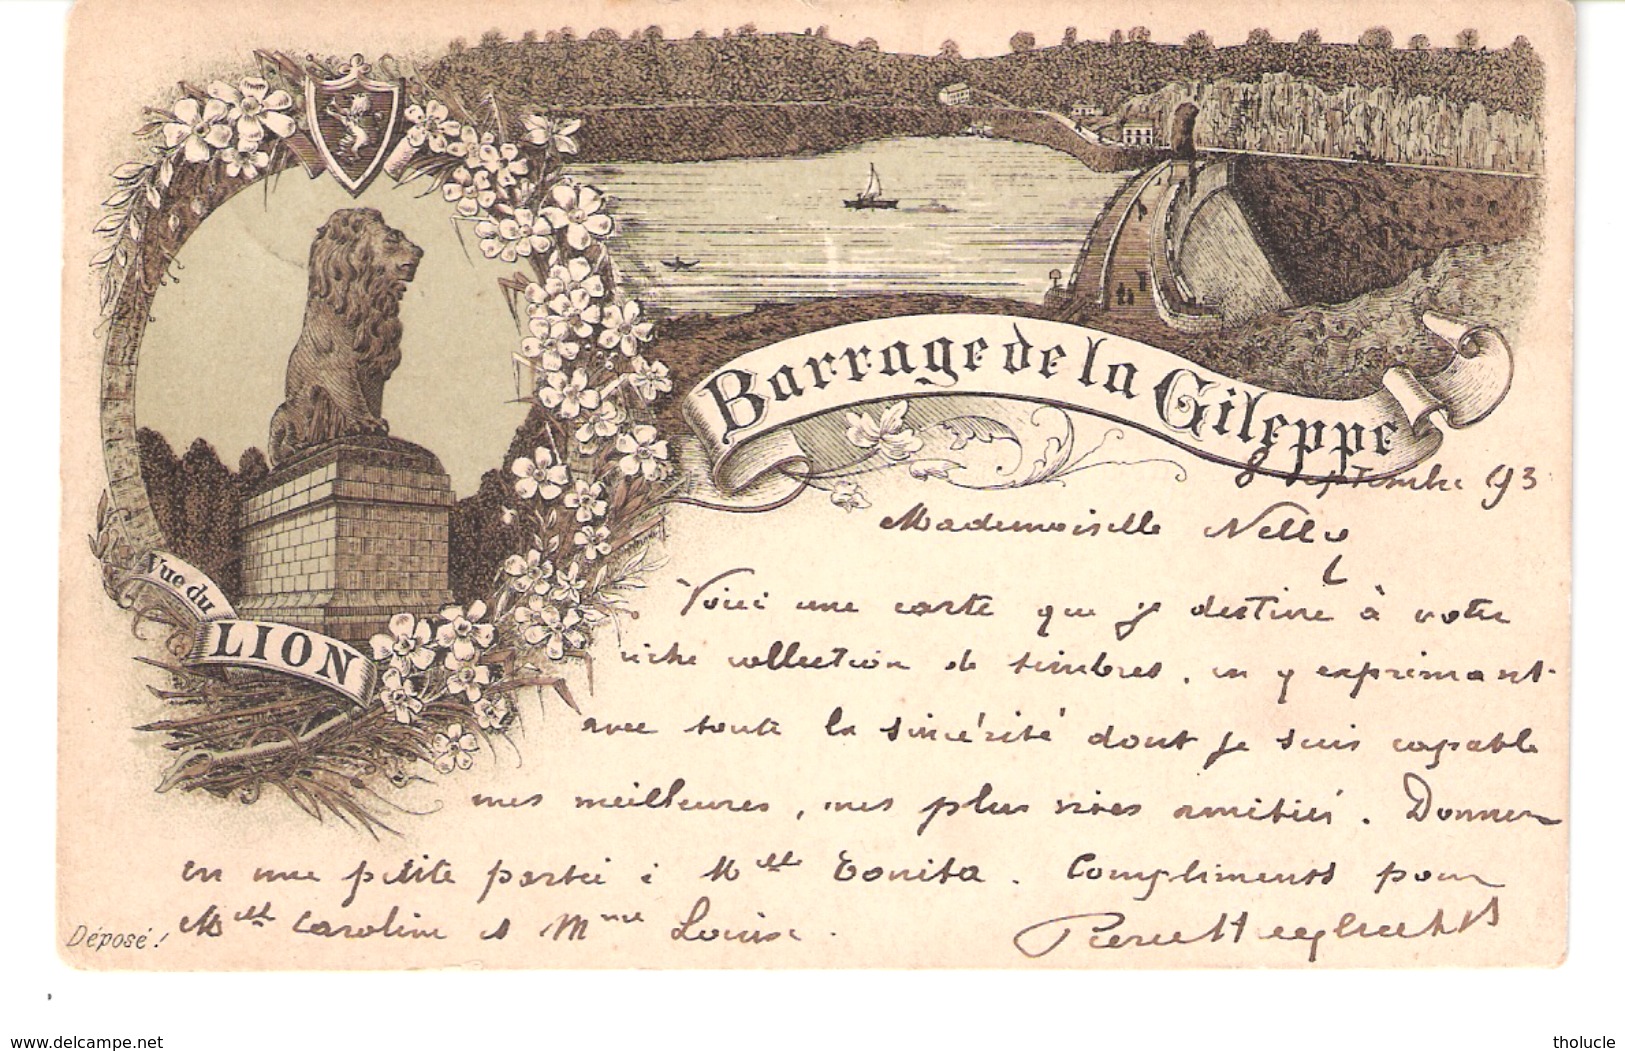 Barrage de la Gileppe
Vue du
LION
8 Septembre 93
Mademoiselle Nelly
Voici une carte que je destine à votre
riche collection de timbres, en y exprimant
avec toute la sincérité dont je suis capable
mes meilleures, mes plus vives amitiés. Donnez
en une petite partie à Mlle Tonita. Compliments pour
Mlle Caroline et Mme Louise.
Pierre
Déposé!
www.delcampe.net
tholucle